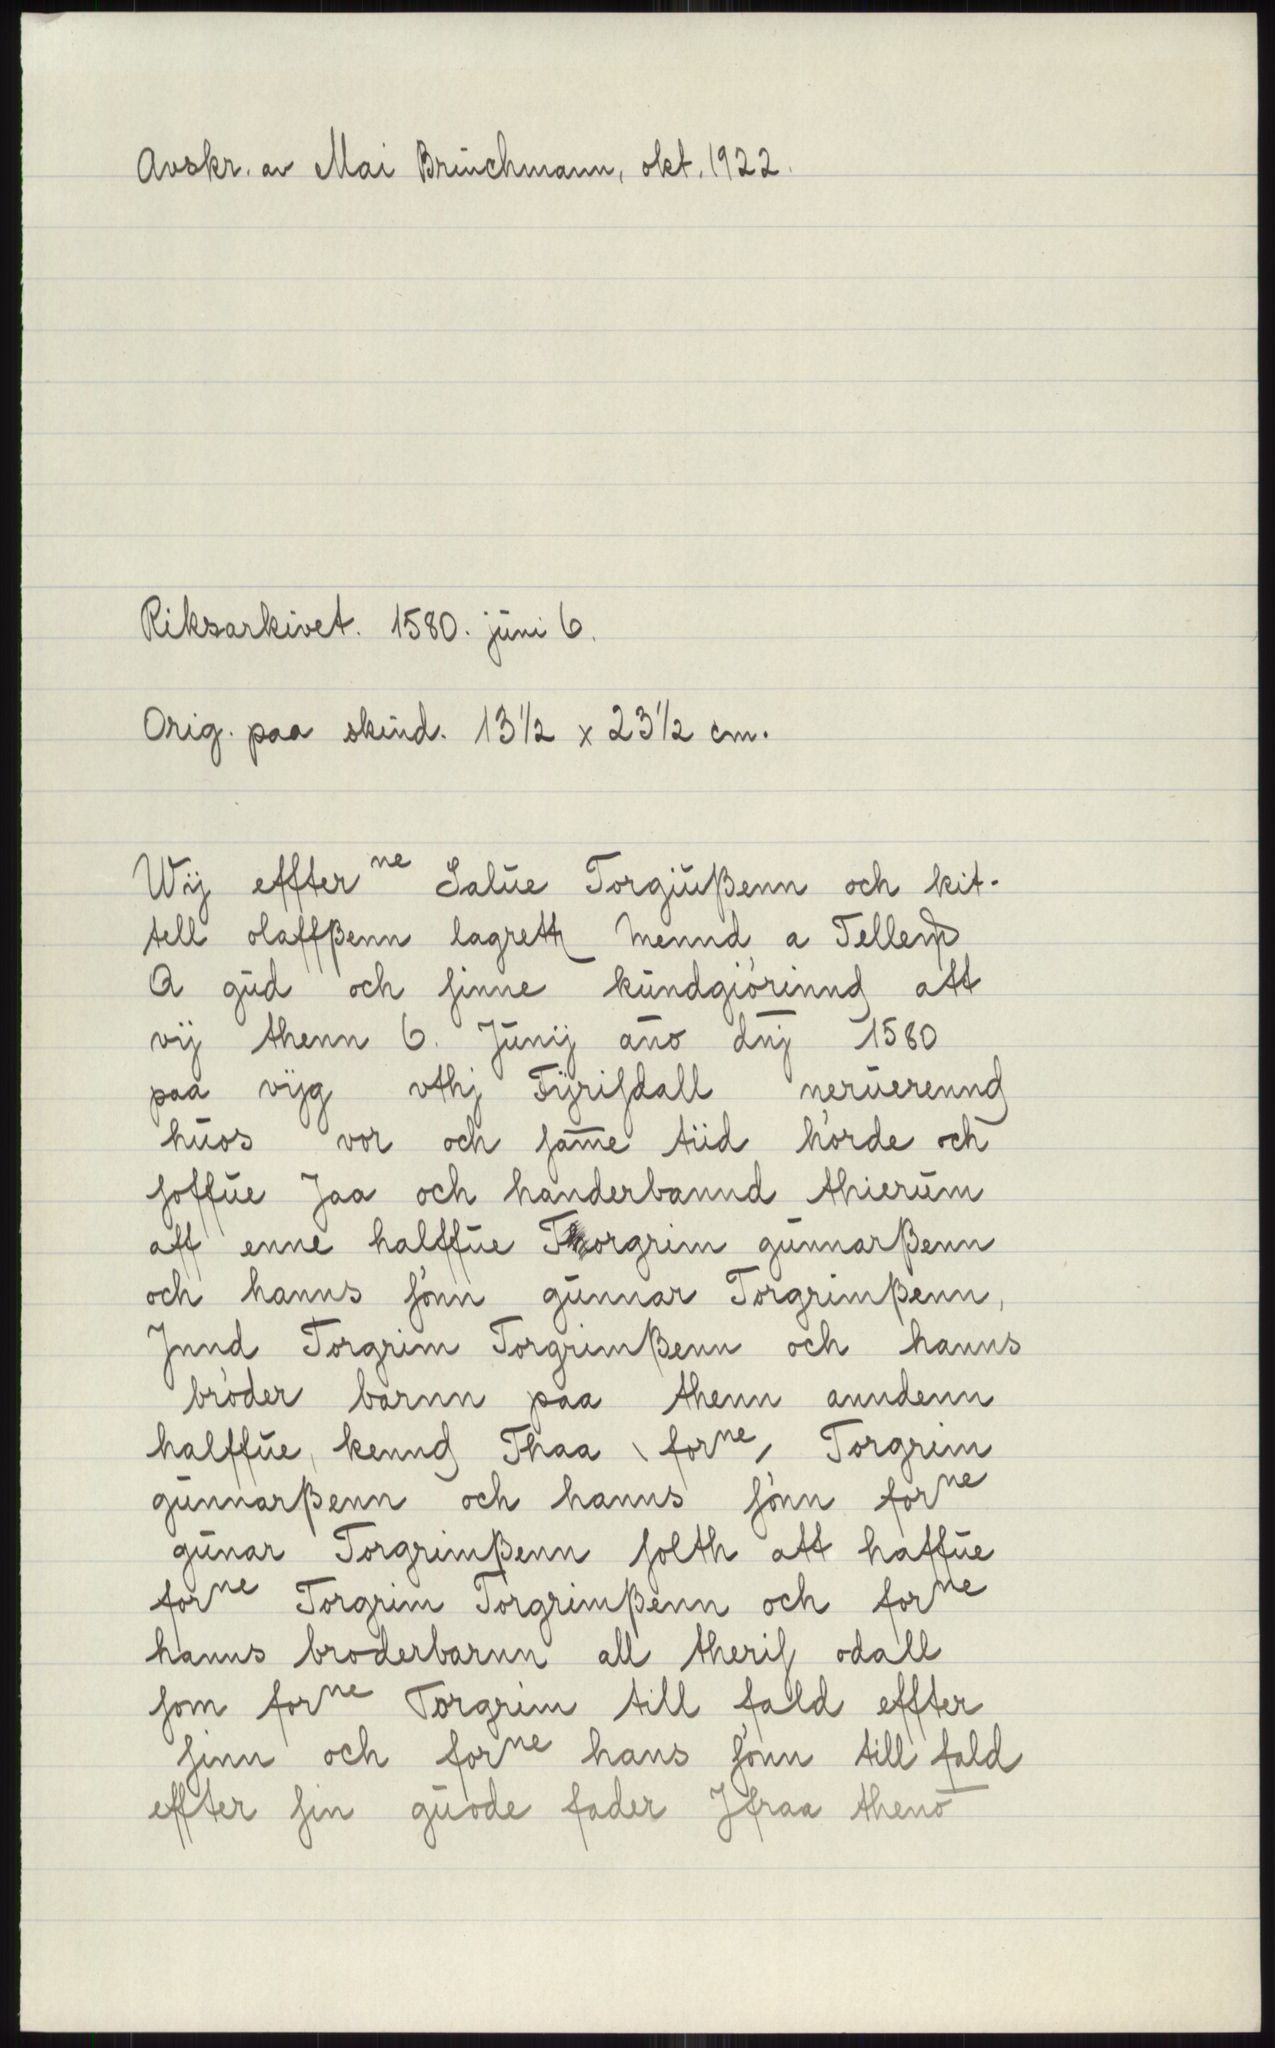 Avskr. av Mai Brüchmann, okt. 1922.
Riksarkivet. 1580. jüni 6.
Orig. paa skind. 13½ x 23½ cm.
Wij effter ne Salüe Torgiüßenn och kit-
tell olaffßenn lagreth mennd a Tellem
A güd och sinne kündgiörinnd att
vij thenn 6. Jünij año dnj 1580
paa vijg vthj Fijrisdall nerüerennd
hüos vor och same tiid hörde och
soffüe Jaa och handerbannd thierüm
aff enne halffüe Torgrim günnarßenn
och hanns sönn günnar Torgrimßenn,
Jnnd Torgrim Torgrimßenn och hanns
bröder barnn paa thenn anndenn
halffüe, kennd Thaa forne, Torgrim
günnarßenn och hanns sönn forne
günar Torgrimßenn solth att haffüe
forne Torgrim Torgrimßenn och forne
hanns broderbarnn all theris odall
som forne Torgrim till fald effter
sinn och forne hans sönn till fald
effter sin güode fader Jfraa theno